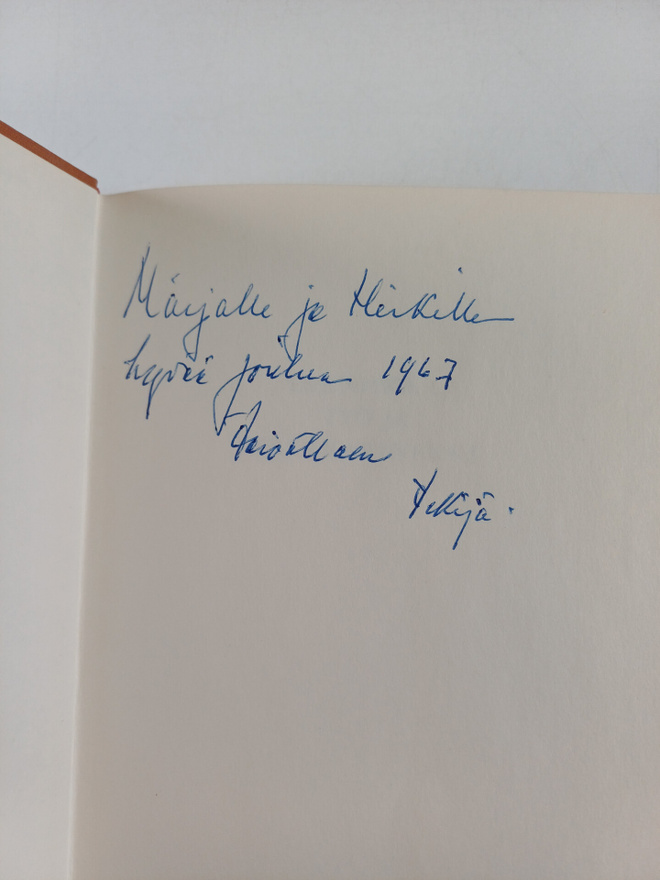 Marjalle ja Heikille
hyvää joulua 1967
toivottaen
Tekijä.